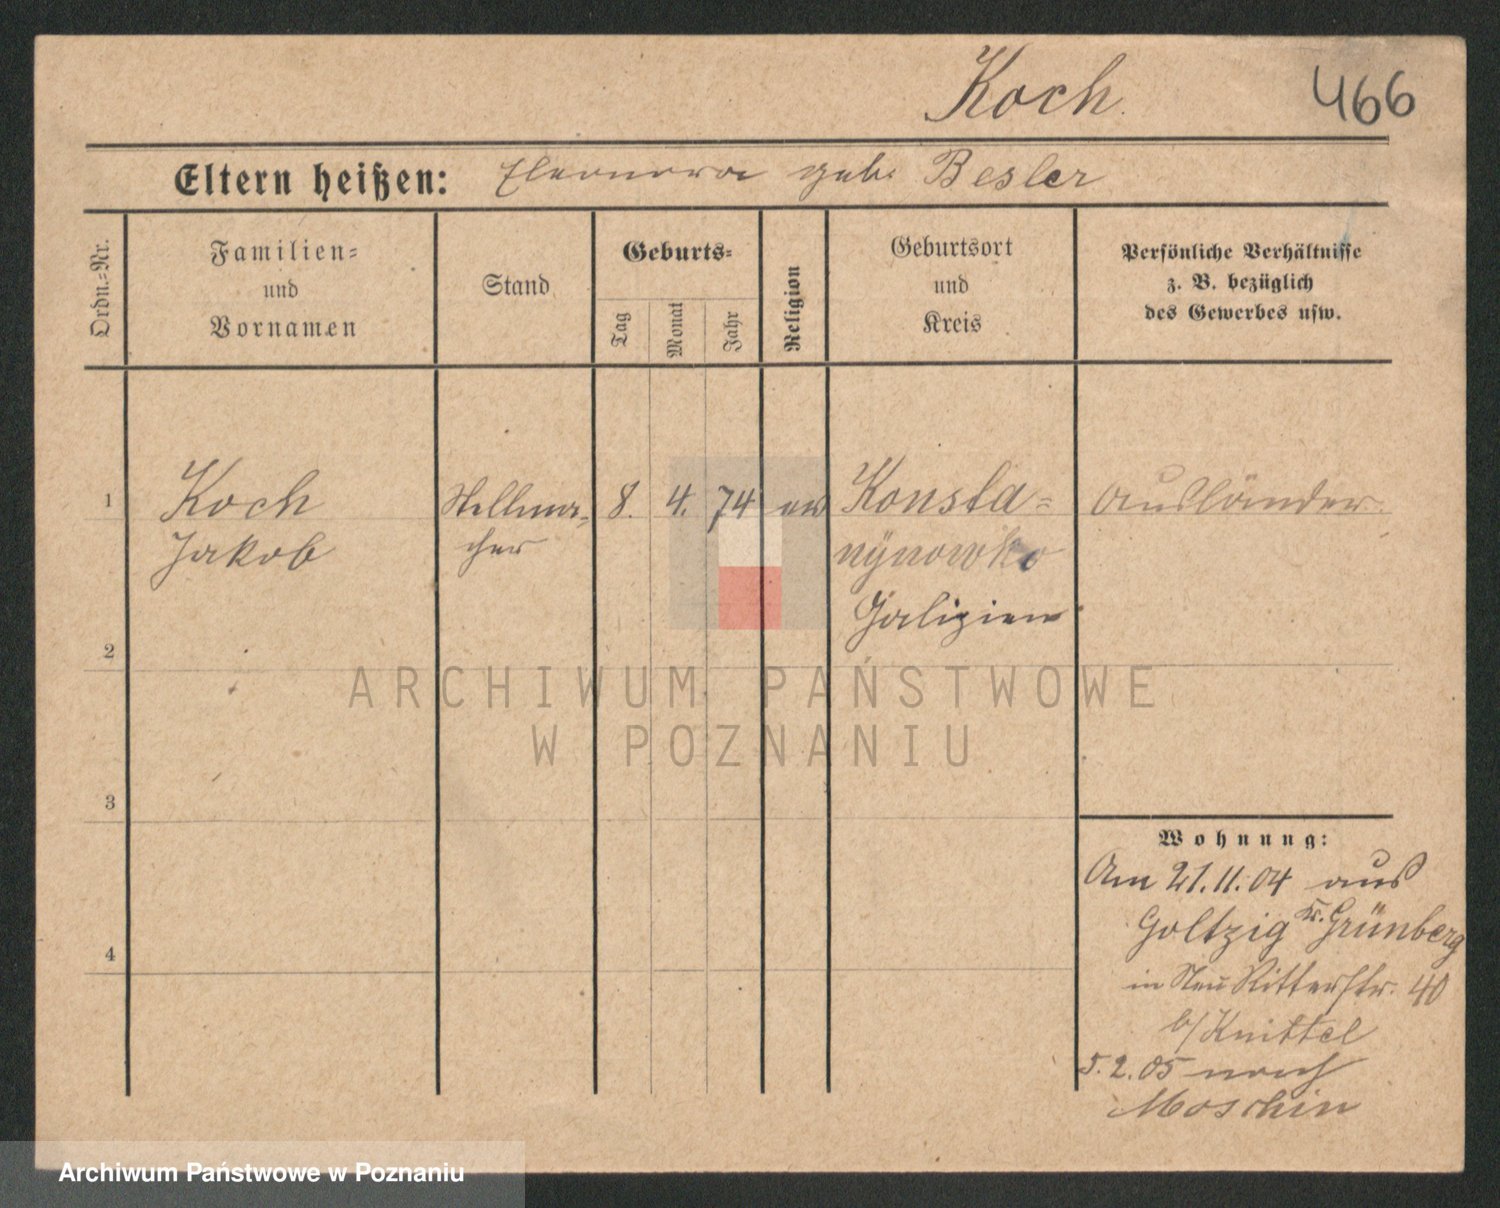 Koch
466
Eltern heißen: Eleonora geb. Besler
Ordn.=Nr.
Familien=
und
Vornamen
Stand
Geburts=
Tag
Monat
Jahr
Religion
Geburtsort
und
Kreis
Persönliche Verhältnisse
z. B. bezüglich
des Gewerbes usw.
1
Koch
Jakob
Stellma=
cher
8.
4.
74
ev
Konsta=
nynowko
Galizien
Ausländer.
2
3
4
Wohnung:
Am 21.11.04 aus
Goltzig Kr. Grünberg
in Neu Ritterstr. 40
b/Knittel
5.2.05 nach
Moschin
ARCHIWUM PAŃSTWOWE
W POZNANIU
Archiwum Państwowe w Poznaniu